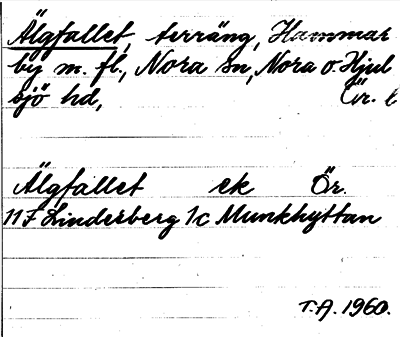 Älgfallet, terräng, Hammar
by m. fl., Nora sn, Nora o. Hjul
sjö hd, Ör. l
Älgfallet ek Ör.
11F Linderberg 1c Munkhyttan
T.A. 1960.